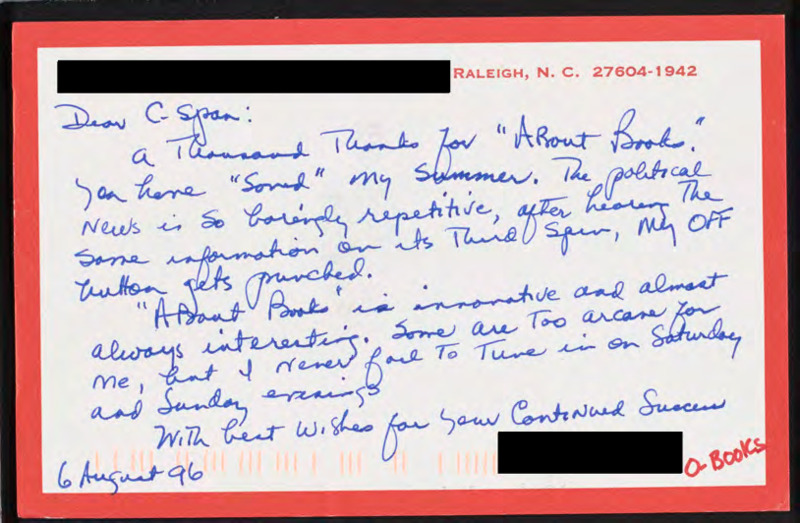 RALEIGH, N. C. 27604-1942
Dear C-Span:
A Thousand Thanks for "About Books."
You have "Saved" My Summer. The political
News is so boringly repetitive, after hearing The
Same information on its Third Spin, My OFF
button gets punched.
"About Books" is innovative and almost
always interesting. Some are Too arcane for
me, but I never fail To Tune in on Saturday
and Sunday evenings
With best Wishes for your Continued Success
6 August 96
Q-BOOKS